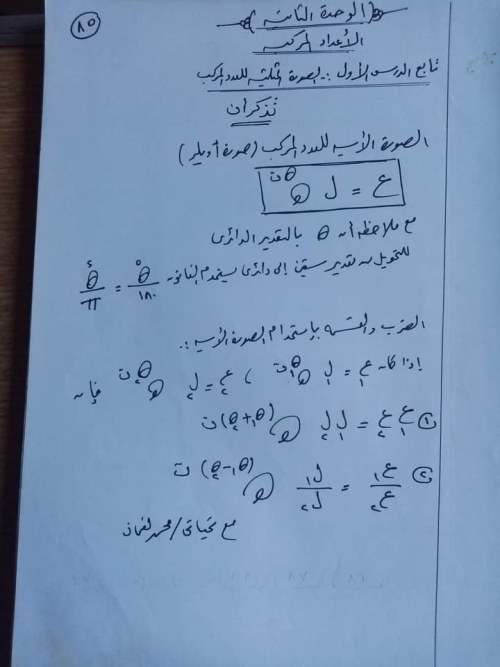 ٨٥
الوحدة الثانية
الأعداد المركبة
تابع الدرس الأول :. الصورة المثلثية للعدد المركب
تذكر أن
الصورة الأسية للعدد المركب (صورة أويلر)
ع = ل هـ^(θت)
مع ملاحظة أن θ بالتقدير الدائرى
للتحويل من تقدير ستينى إلى دائرى نستخدم القانون θ°/١٨٠ = θء/π
الضرب والقسمة بإستخدام الصورة الأسية :.
إذا كان ع₁ = ل₁ هـ^(θ₁ت) ، ع₂ = ل₂ هـ^(θ₂ت) فإن
① ع₁ع₂ = ل₁ل₂ هـ^((θ₁+θ₂)ت)
② ع₁/ع₂ = ل₁/ل₂ هـ^((θ₁-θ₂)ت)
مع تحياتى / محمد